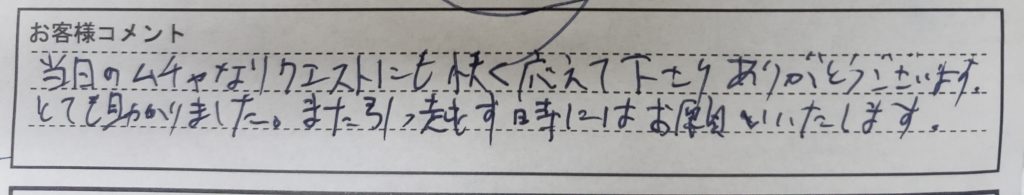 お客様コメント
当日のムチャなリクエストにも快く応えて下さりありがとうございます。
とても助かりました。また引っ越もす時にはお願いいたします。